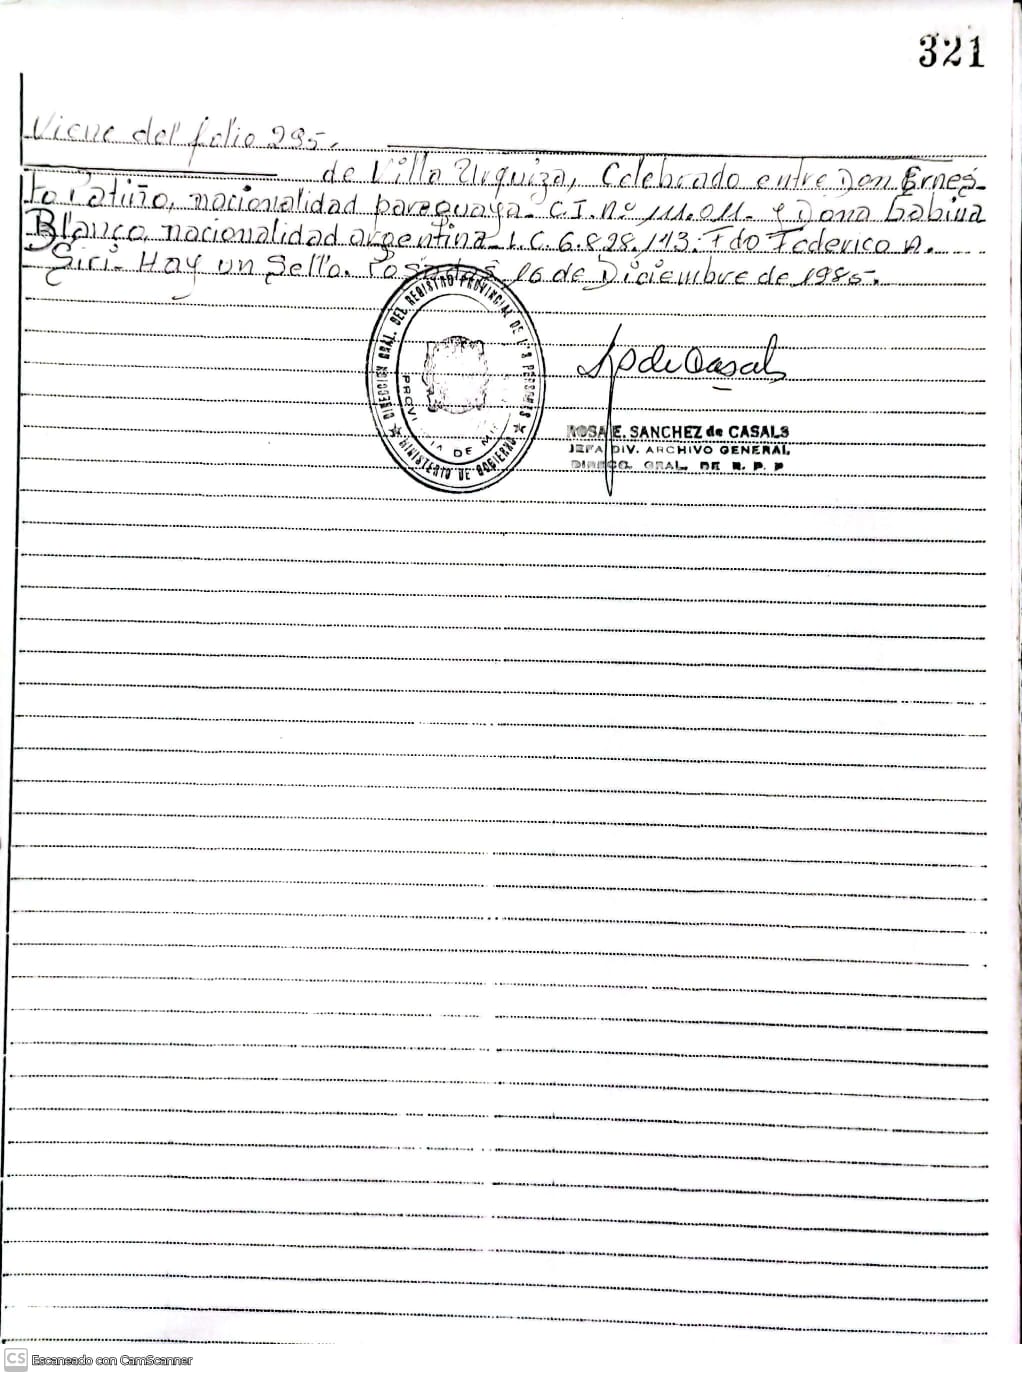 321
Viene del folio 295.
de Villa Urquiza, Celebrado entre Don Ernes-
to Patiño, nacionalidad paraguaya- C.I. nº 111.011- y Doña Sabina
Blanco, nacionalidad argentina- L.C. 6.828.113- Fdo Federico A.
Siri- Hay un Sello. Posadas 16 de Diciembre de 1985.
DIRECCION GRAL. DEL REGISTRO PROVINCIAL DE LAS PERSONAS
PROVI IA DE MI
MINISTERIO DE GOBIERNO
ROSA E. SANCHEZ de CASALS
JEFA DIV. ARCHIVO GENERAL
DIRECC. GRAL. DE R. P. P
CS Escaneado con CamScanner